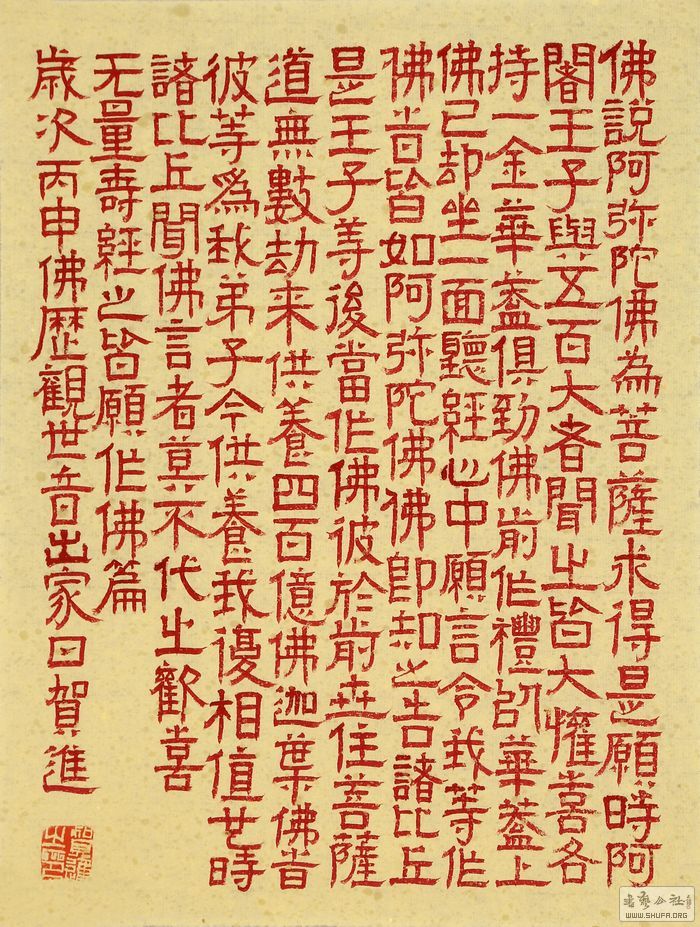 佛說阿弥陀佛為菩薩求得是願時阿
闍王子與五百大者聞之皆大懽喜各
持一金華葢俱到佛前作禮以華葢上
佛已却坐一面聽經心中願言令我等作
佛昔皆如阿弥陀佛佛即知之告諸比丘
是王子等後當作佛彼於前世住菩薩
道無數劫来供養四百億佛迦葉佛昔
彼等爲我弟子今供養我復相值也時
諸比丘聞佛言者莫不代之歡喜
无量壽經之皆願作佛篇
歲次丙申佛歷觀世音出家日賀進
書藝公社
WWW.SHUFA.ORG